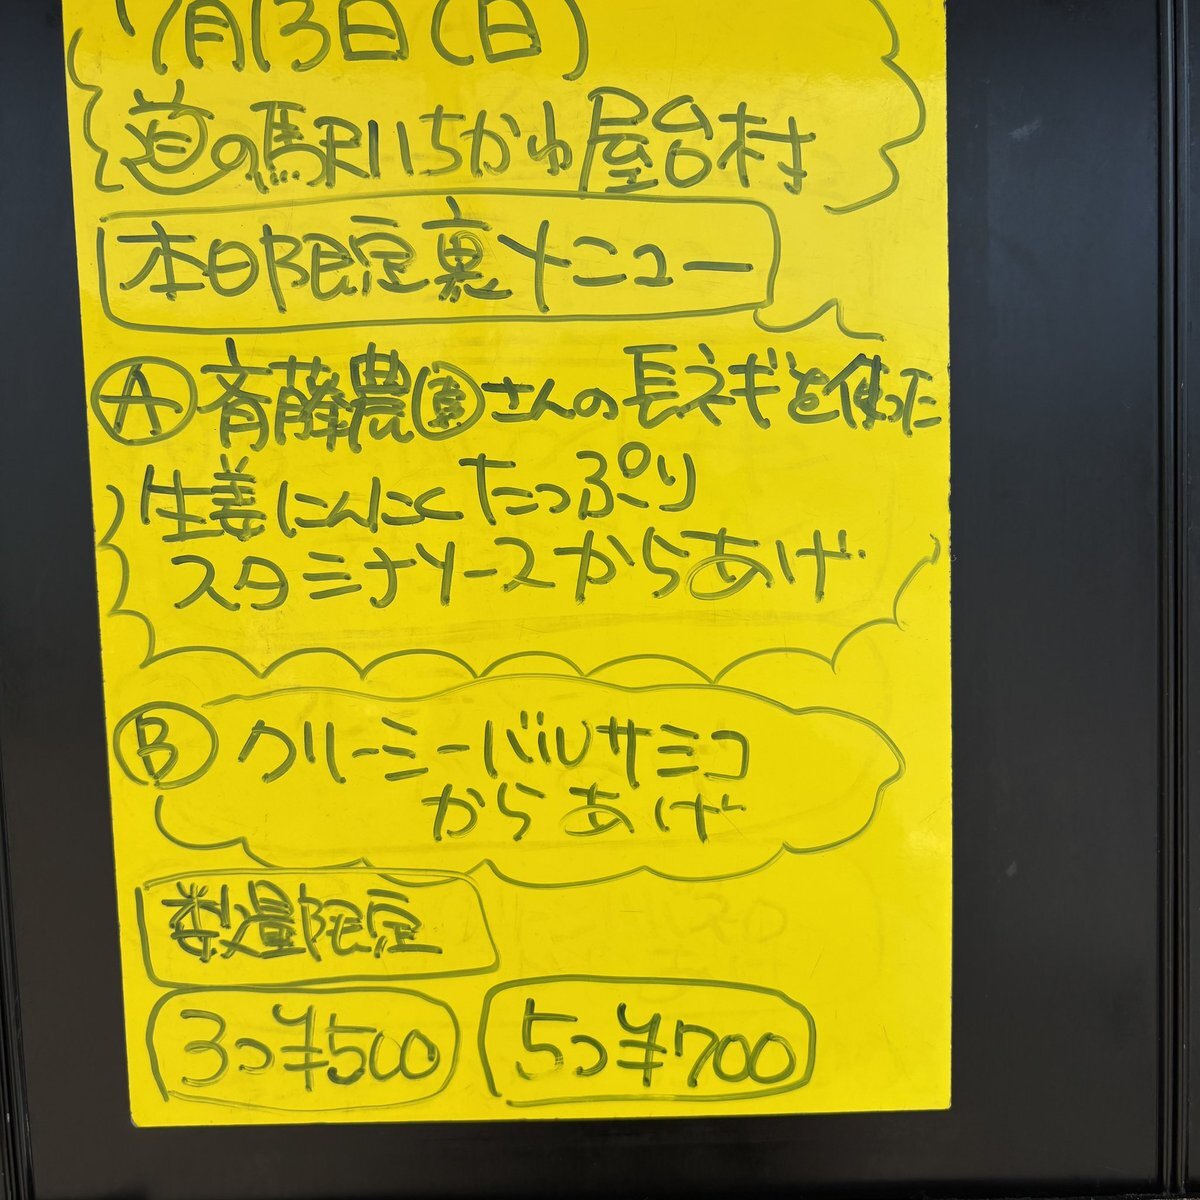 7月13日(日)
道の駅いちかわ屋台村
本日限定裏メニュー
A 斉藤農園さんの長ネギを使った
生姜にんにくたっぷり
スタミナソースからあげ
B クリーミーバルサミコ
からあげ
数量限定
3つ¥500 5つ¥700